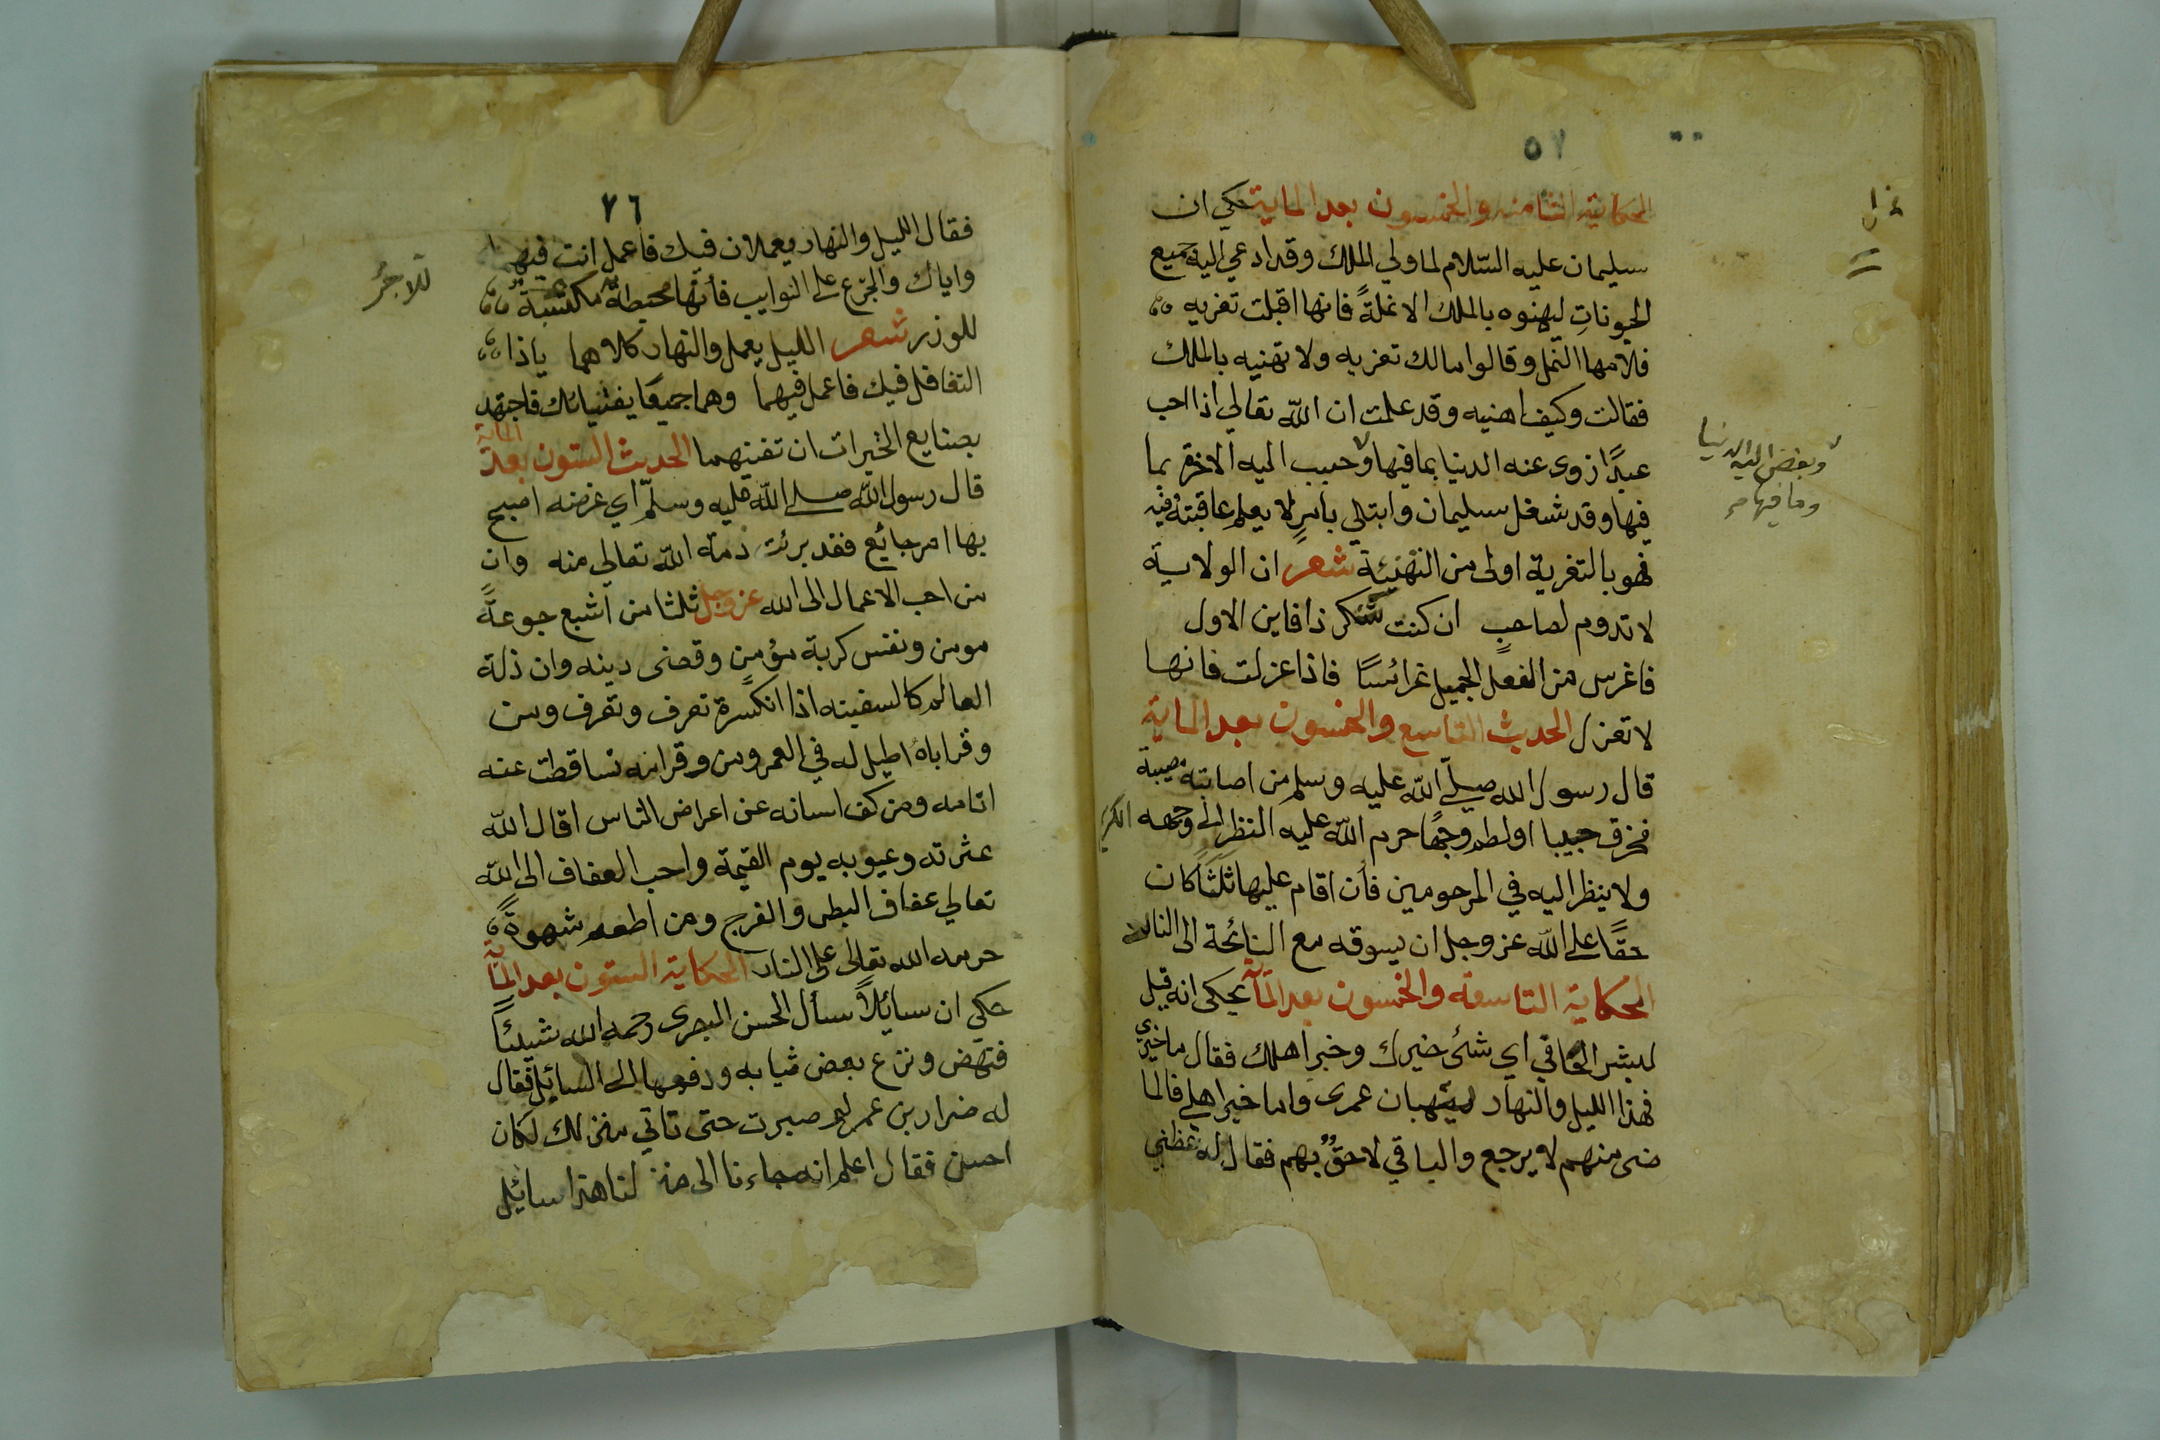 ٥٧
الحكاية الثامنه والخمسون بعد الماية حكي ان
سليمان عليه السّلام لما ولي الملك وقد ادعي اليه جميع
الحيونات ليهنوه بالملك الا نملةً فانها اقبلت تعزيه
فلامها النمل وقالوا مالك تعزيه ولا تهنيه بالملك
فقالت وكيف اهنيه وقد علمت ان الله تعالي اذا احب
عبدًا زوى عنه الدنيا بما فيها وحبب اليه الاخرة بما
وبغض اليه الدنيا
وما فيها
فيها وقد شغل سليمان وابتلي بامرٍ لا يعلم عاقبته فيه
فهو بالتعزية اولى من التهنيئة شعر ان الولاية
لا تدوم لصاحبٍ ان كنت شكر ذا فاين الاول
فاغرس من الفعل الجميل غرائسًا فاذا عزلت فانها
لا تعزل الحديث التاسع والخمسون بعد الماية
قال رسول الله صلي الله عليه وسلم من اصابته مصيبة
فخرق جيبا او لطم وجهًا حرم الله عليه النظر الى وجهه الكريم
ولا ينظر اليه في المرحومين فأن اقام عليها ثلثًا كان
حقًا على الله عز وجل ان يسوقه مع النائحة الى النار
الحكاية التاسعة والخمسون بعد المآية يحكى انه قيل
لبشر الحافي اي شئ خبرك وخبر اهلك فقال ما خبري
فهذا الليل والنهار ينهبان عمرى واما خبر اهلي فالما
ضى منهم لا يرجع والباقي لاحقٌ بهم فقال له عظني
٧٦
فقال الليل والنهار يعملان فيك فاعمل انت فيهما
واياك والجزع على النوايب فأنها محبطة مكتسبة
للاجر
للوزر شعر الليل يعمل والنهار كلاهما ياذا
التغافل فيك فاعمل فيهما وهما جميعًا يفنيانك فاجتهد
بصنايع الخيرات ان تفنيهما الحديث الستون بعد الماية
قال رسول الله صلى الله عليه وسلم اي عرصه اصبح
بها امر جائع فقد برئت ذمة الله تعالي منه وان
من احب الاعمال الى الله عز وجل ثلثا من اشبع جوعة
مومن ونفس كربة مؤمن وقضى دينه وان ذلة
العالم كالسفينه اذا انكسرة تعرف وتغرف ومن
وقر اباه اطيل له في العمر ومن وقر امه تساقطت عنه
اثامه ومن كف لسانه عن اعراض الناس اقال الله
عثرته وعيوبه يوم القيمة واحب العفاف الى الله
تعالي عفاف البطن والفرج ومن اطعم شهوةً
حرمه الله تعالى على النار الحكاية الستون بعد الماية
حكى ان سائلاً سأل الحسن البصرى رحمه الله شيئًا
فنهض ونزع بعض ثيابه ودفعها الى السائل فقال
له ضرار بن عمر لو صبرت حتى تأتي منزلك لكان
احسن فقال اعلم انه جاءنا الى منز لنا هذا سائل